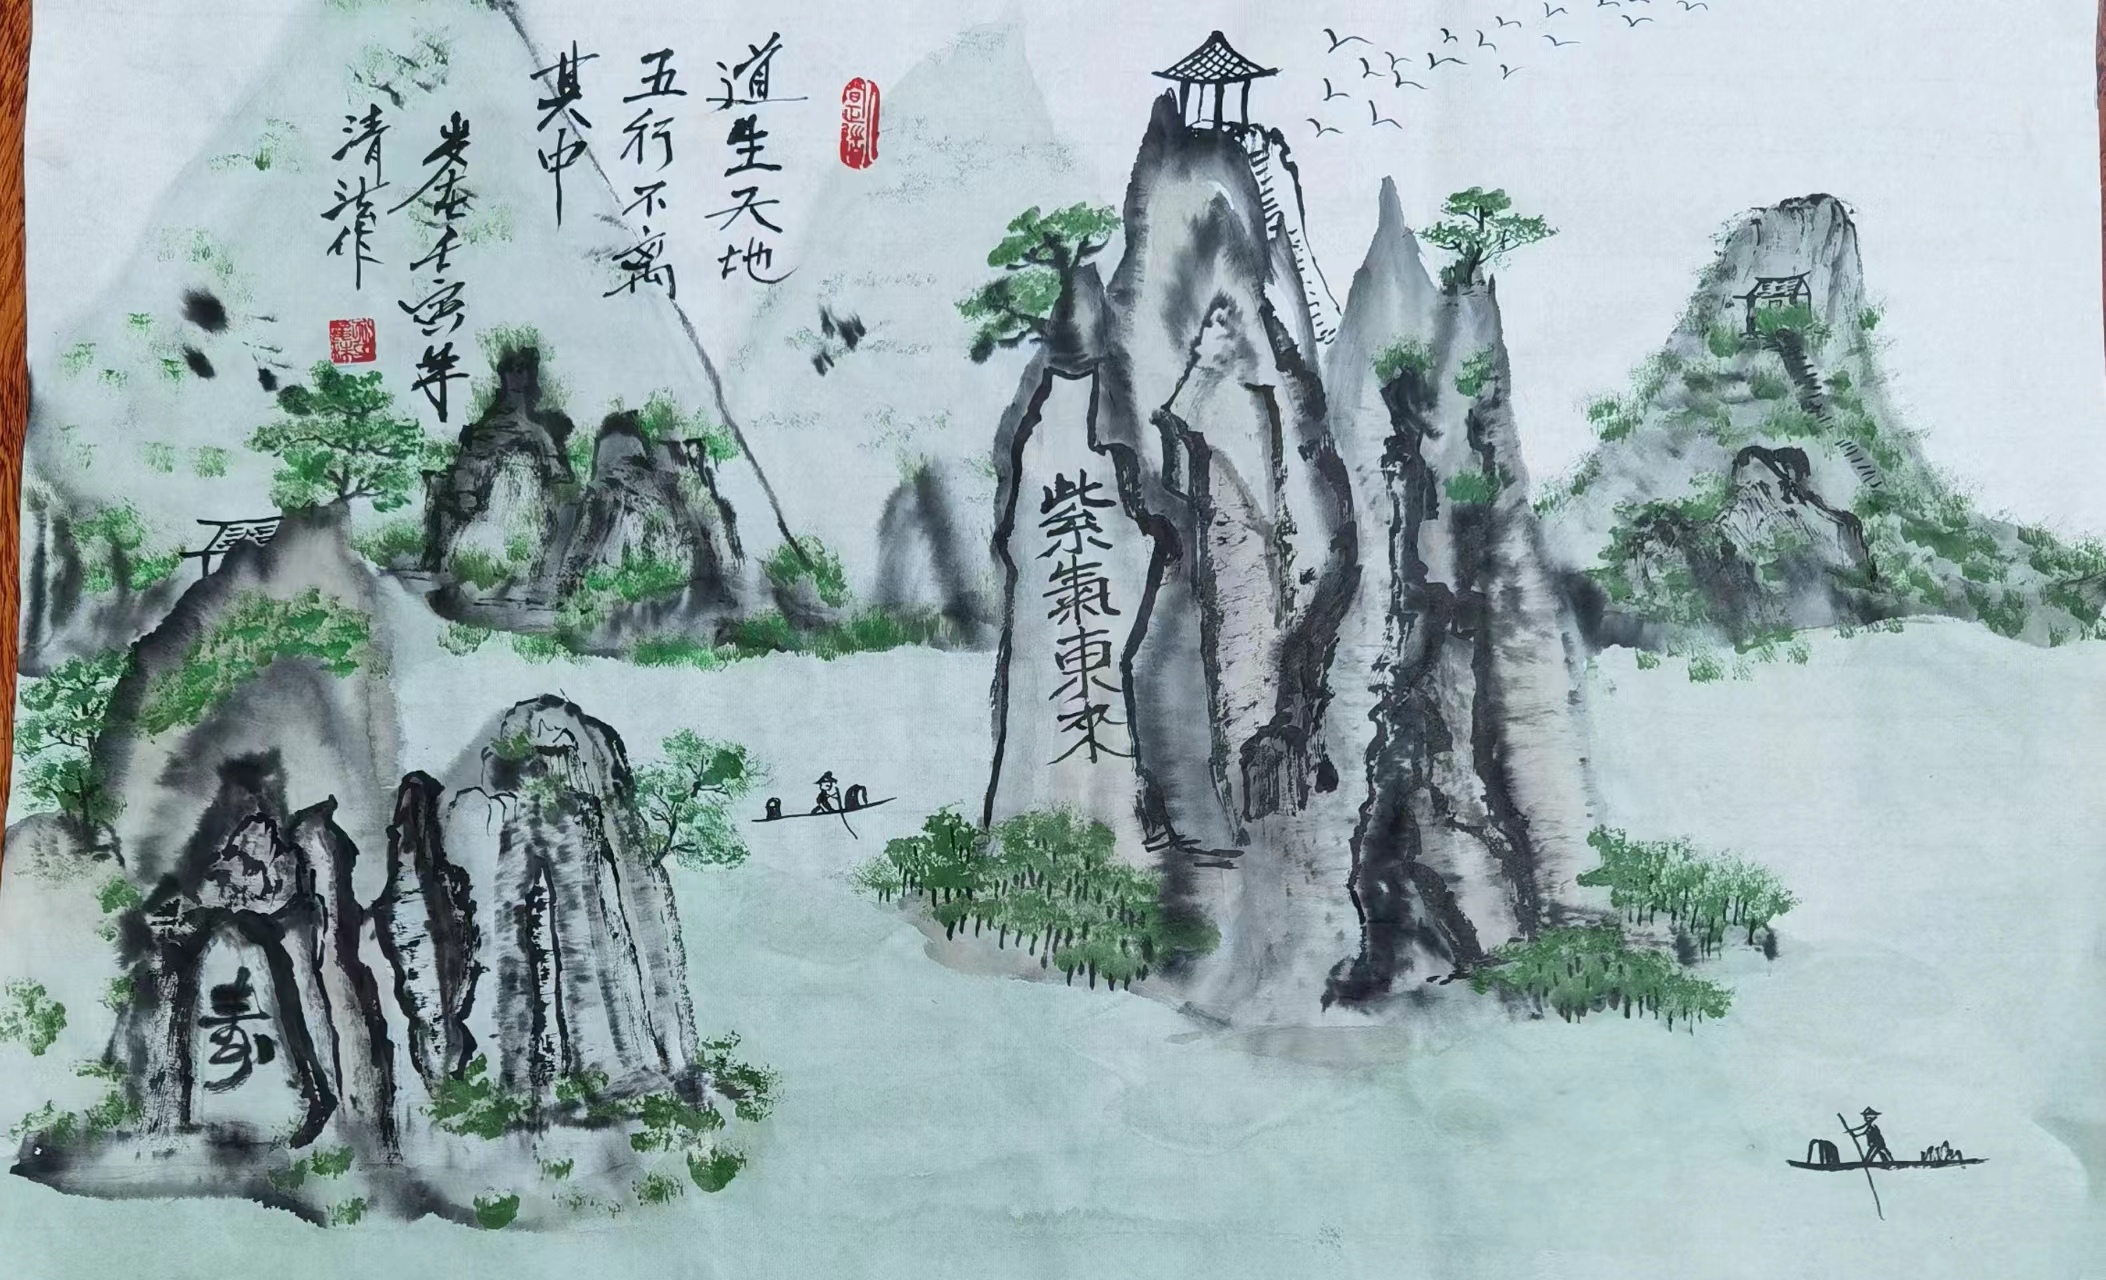 道生天地
五行不离
其中
岁在壬寅年
清法作
紫氣東來
寿